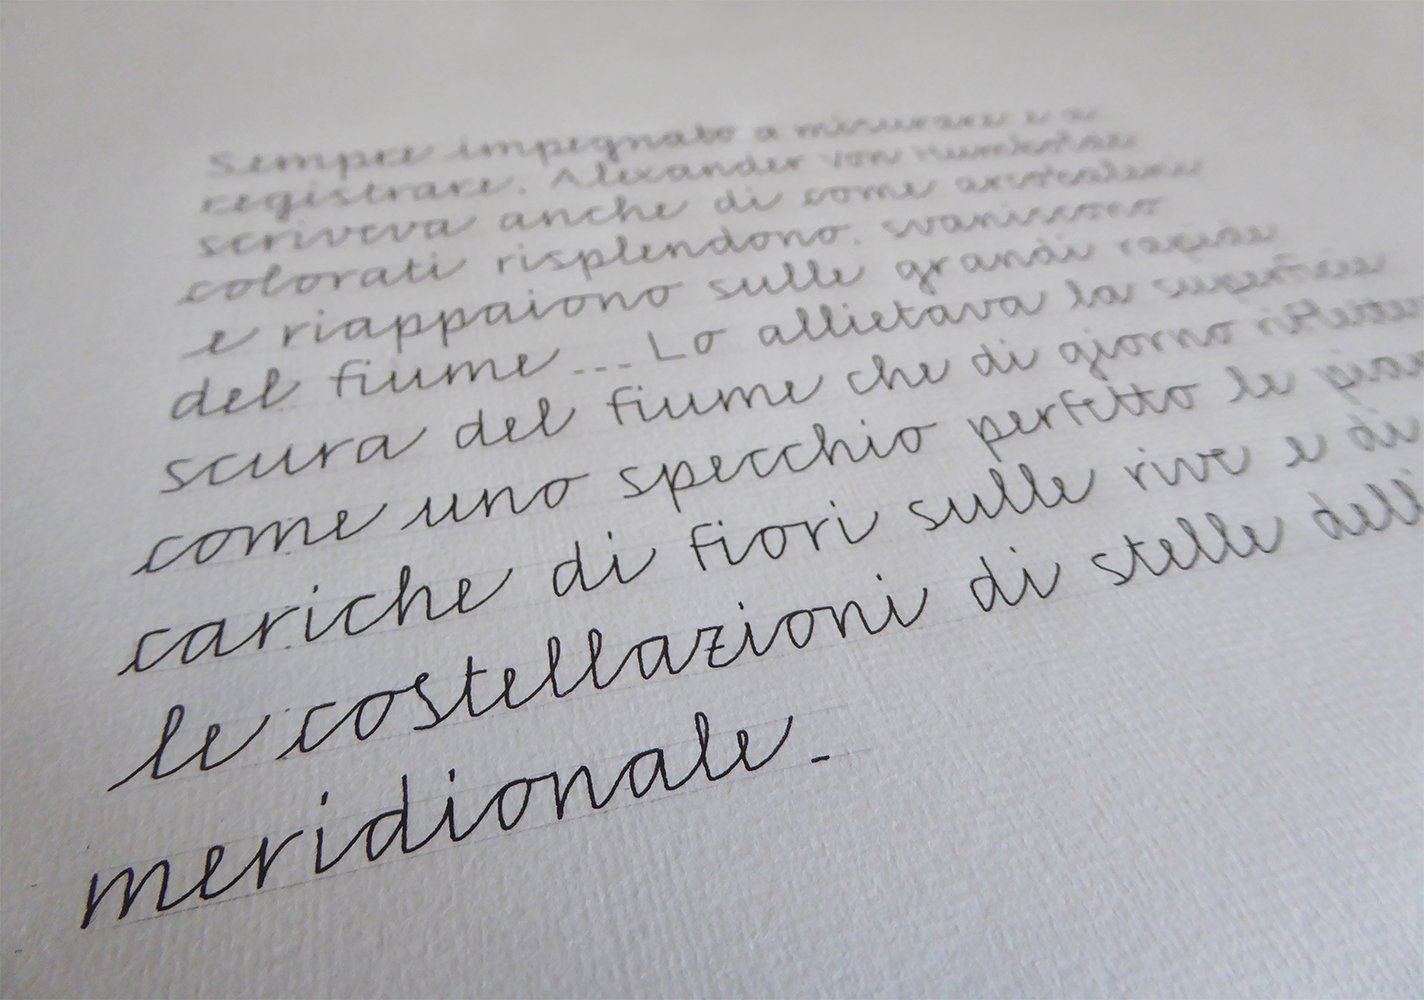 Sempre impegnato a misurare e a
registrare. Alexander von Humboldt
scriveva anche di come arcobaleni
colorati risplendono. svaniscono
e riappaiono sulle grandi rapide
del fiume... Lo allietava la superficie
scura del fiume che di giorno
come uno specchio perfetto le
cariche di fiori sulle rive e di
le costellazioni di stelle
meridionale.